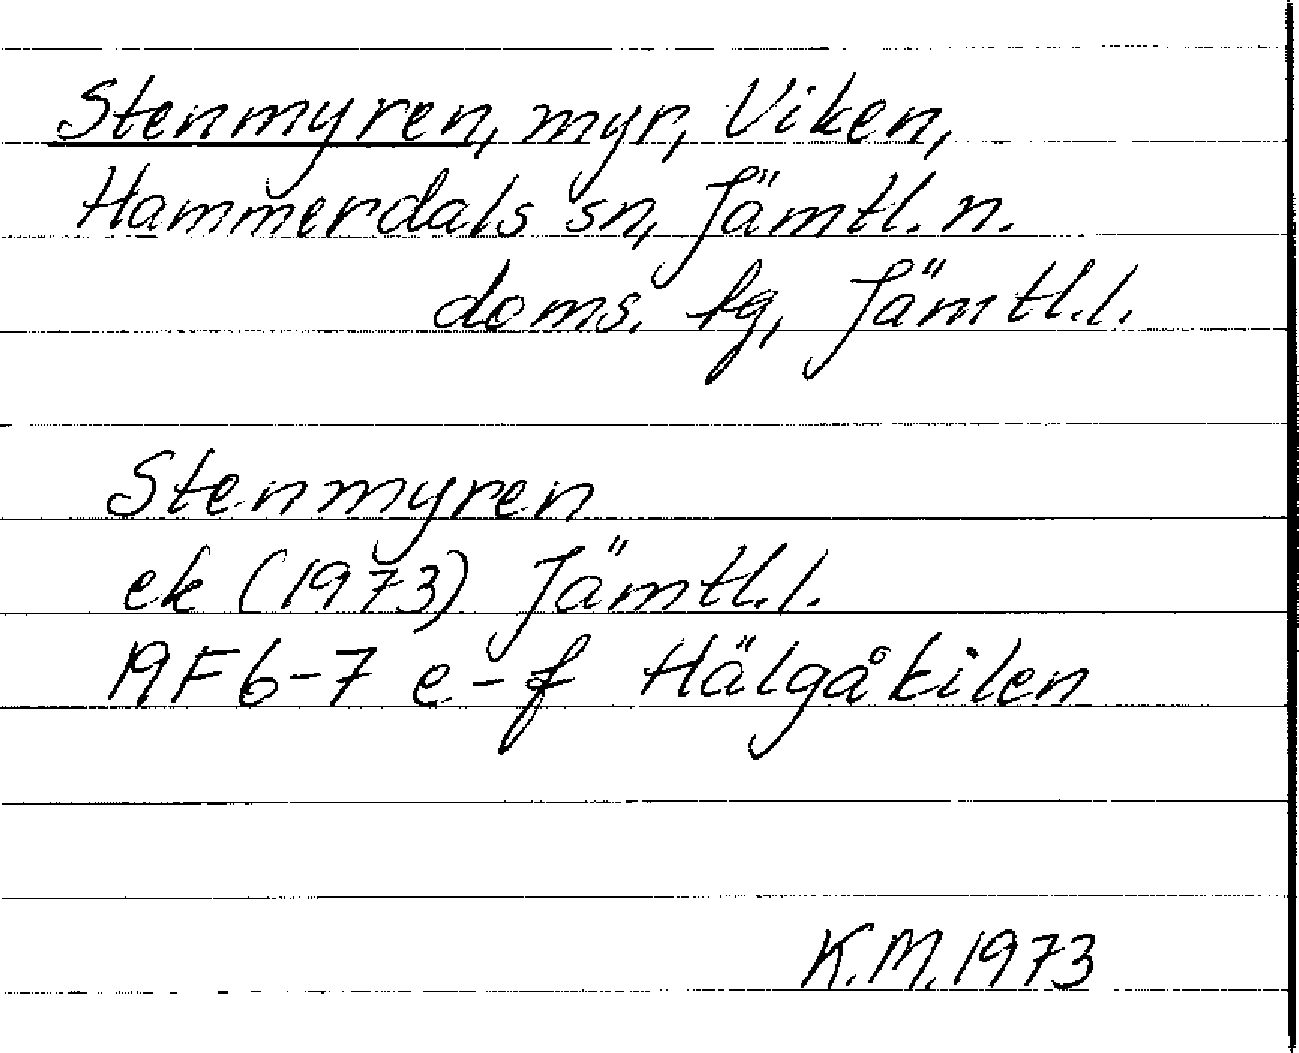 Stenmyren, myr, Viken,
Hammerdals sn, Jämtl. n.
doms. fg, Jämtl.l.
Stenmyren
ek (1973) Jämtl.l.
19F 6-7 e-f Hälgåkilen
K.M. 1973